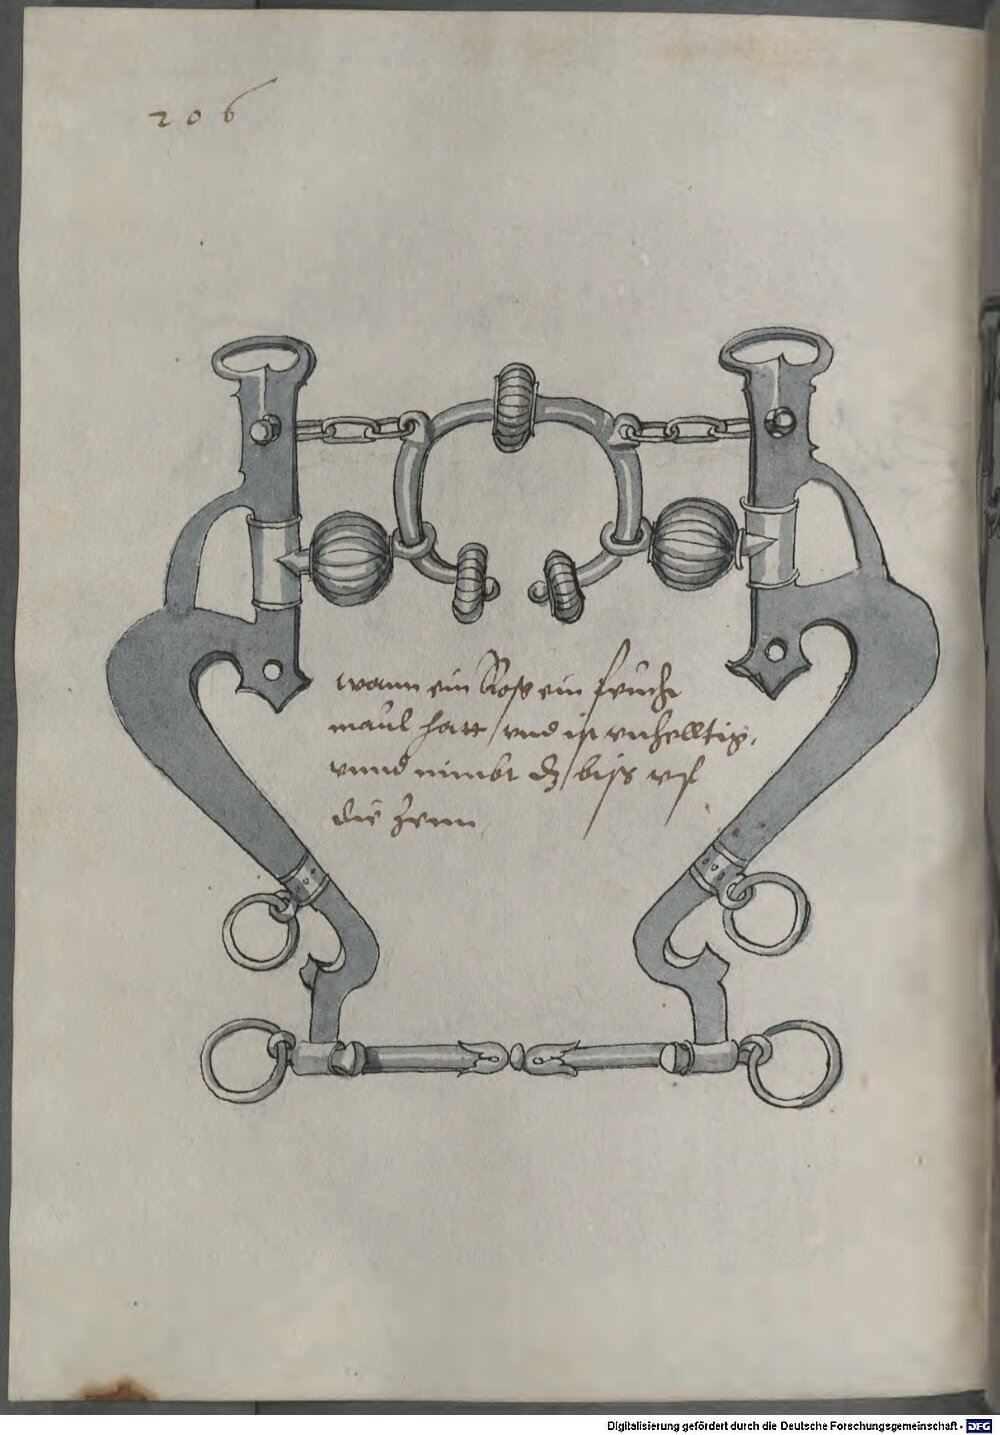 206
wann ein Ross ein feücht
maül hatt / vnd ist
vnnd nimbt dz / biss vf
die zenn
Digitalisierung gefördert durch die Deutsche Forschungsgemeinschaft - DFG